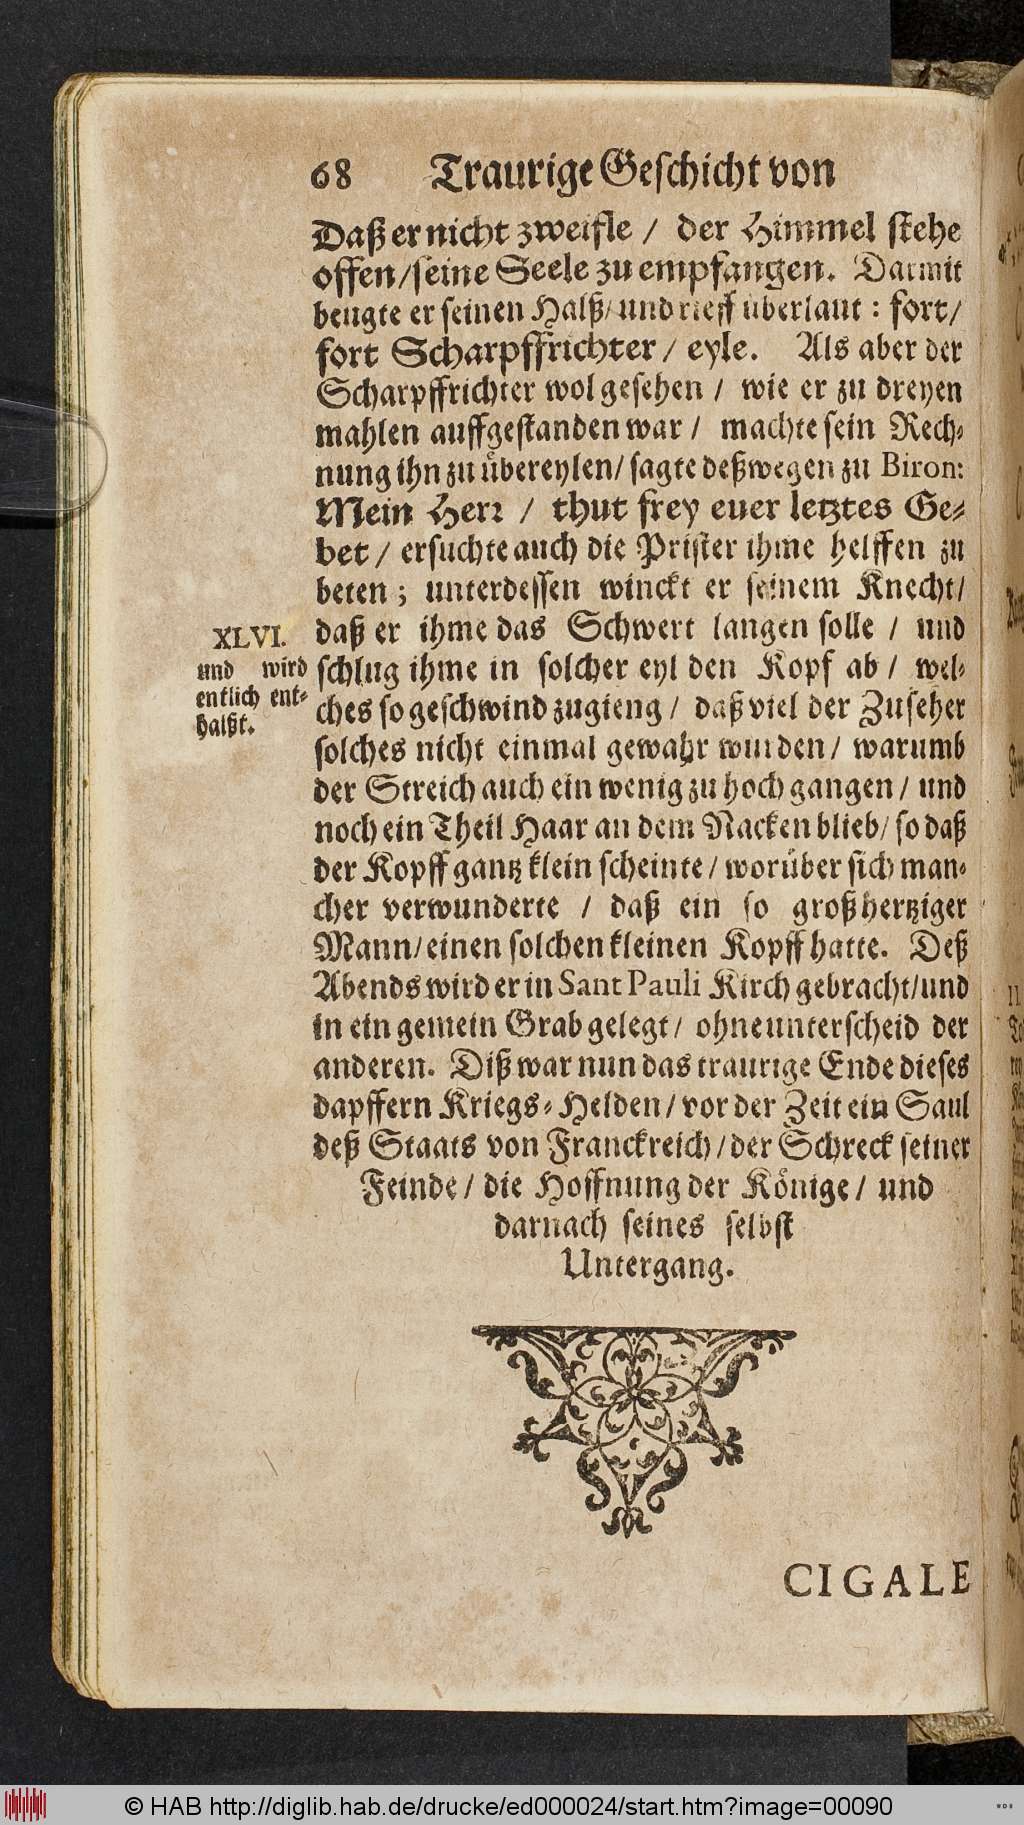 68 Traurige Geschicht von
Daß er nicht zweifle / der Himmel stehe
offen / seine Seele zu empfangen. Darmit
beugte er seinen Halß / und rieff überlaut : fort /
fort Scharpffrichter / eyle. Als aber der
Scharpffrichter wol gesehen / wie er zu dreyen
mahlen auffgestanden war / machte sein Rech-
nung ihn zu übereylen / sagte deßwegen zu Biron:
Mein Herr / thut frey euer letztes Ge-
bet / ersuchte auch die Prister ihme helffen zu
beten ; unterdessen winckt er seinem Knecht /
XLVI.
und wird
entlich ent-
halßt.
daß er ihme das Schwert langen solle / und
schlug ihme in solcher eyl den Kopf ab / wel-
ches so geschwind zugieng / daß viel der Zuseher
solches nicht einmal gewahr wurden / warumb
der Streich auch ein wenig zu hoch gangen / und
noch ein Theil Haar an dem Nacken blieb / so daß
der Kopff gantz klein scheinte / worüber sich man-
cher verwunderte / daß ein so großhertziger
Mann / einen solchen kleinen Kopff hatte. Deß
Abends wird er in Sant Pauli Kirch gebracht / und
in ein gemein Grab gelegt / ohne unterscheid der
anderen. Diß war nun das traurige Ende dieses
dapffern Kriegs-Helden / vor der Zeit ein Saul
deß Staats von Franckreich / der Schreck seiner
Feinde / die Hoffnung der Könige / und
darnach seines selbst
Untergang.
CIGALE
© HAB http://diglib.hab.de/drucke/ed000024/start.htm?image=00090